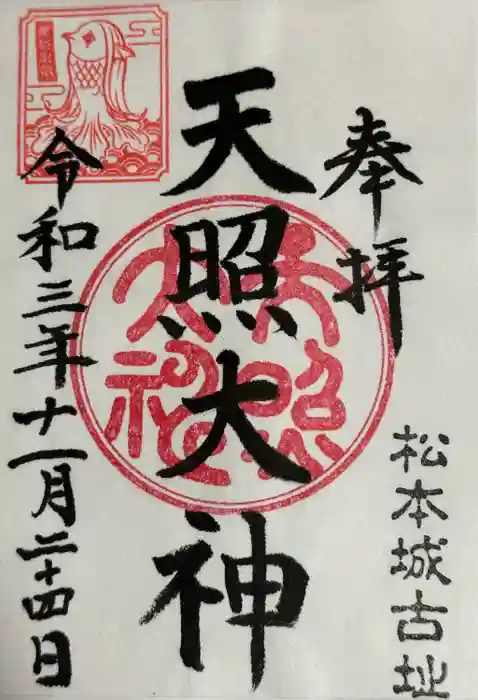 奉拝
松本城古址
天照大神
天照大神
令和三年十一月二十四日